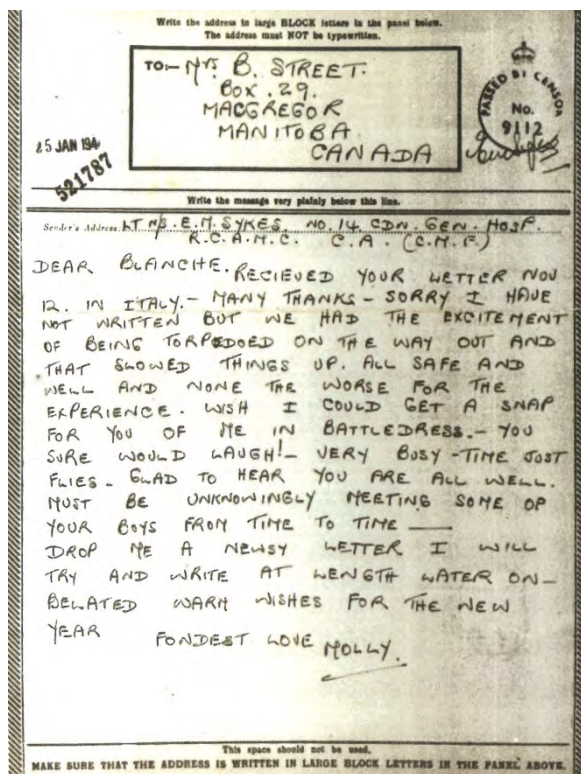 Write the address in large BLOCK letters in the panel below.
The address must NOT be typewritten.
TO:- Mrs. B. STREET.
BOX. 29.
MACGREGOR
MANITOBA
CANADA
PASSED BY CENSOR
No.
9112
25 JAN 194
521787
Write the message very plainly below this line.
Sender's Address LT N/S. E.M. SYKES, NO. 14. CDN. GEN. HOSP.
R.C.A.M.C. C.A. (C.M.F.)
DEAR BLANCHE. RECIEVED YOUR LETTER NOV
12. IN ITALY. - MANY THANKS - SORRY I HAVE
NOT WRITTEN BUT WE HAD THE EXCITEMENT
OF BEING TORPEDOED ON THE WAY OUT AND
THAT SLOWED THINGS UP. ALL SAFE AND
WELL AND NONE THE WORSE FOR THE
EXPERIENCE. WISH I COULD GET A SNAP
FOR YOU OF ME IN BATTLEDRESS. - YOU
SURE WOULD LAUGH! - VERY BUSY - TIME JUST
FLIES. GLAD TO HEAR YOU ARE ALL WELL.
MUST BE UNKNOWINGLY MEETING SOME OF
YOUR BOYS FROM TIME TO TIME —
DROP ME A NEWSY LETTER I WILL
TRY AND WRITE AT LENGTH LATER ON -
BELATED WARM WISHES FOR THE NEW
YEAR FONDEST LOVE MOLLY.
This space should not be used.
MAKE SURE THAT THE ADDRESS IS WRITTEN IN LARGE BLOCK LETTERS IN THE PANEL ABOVE.